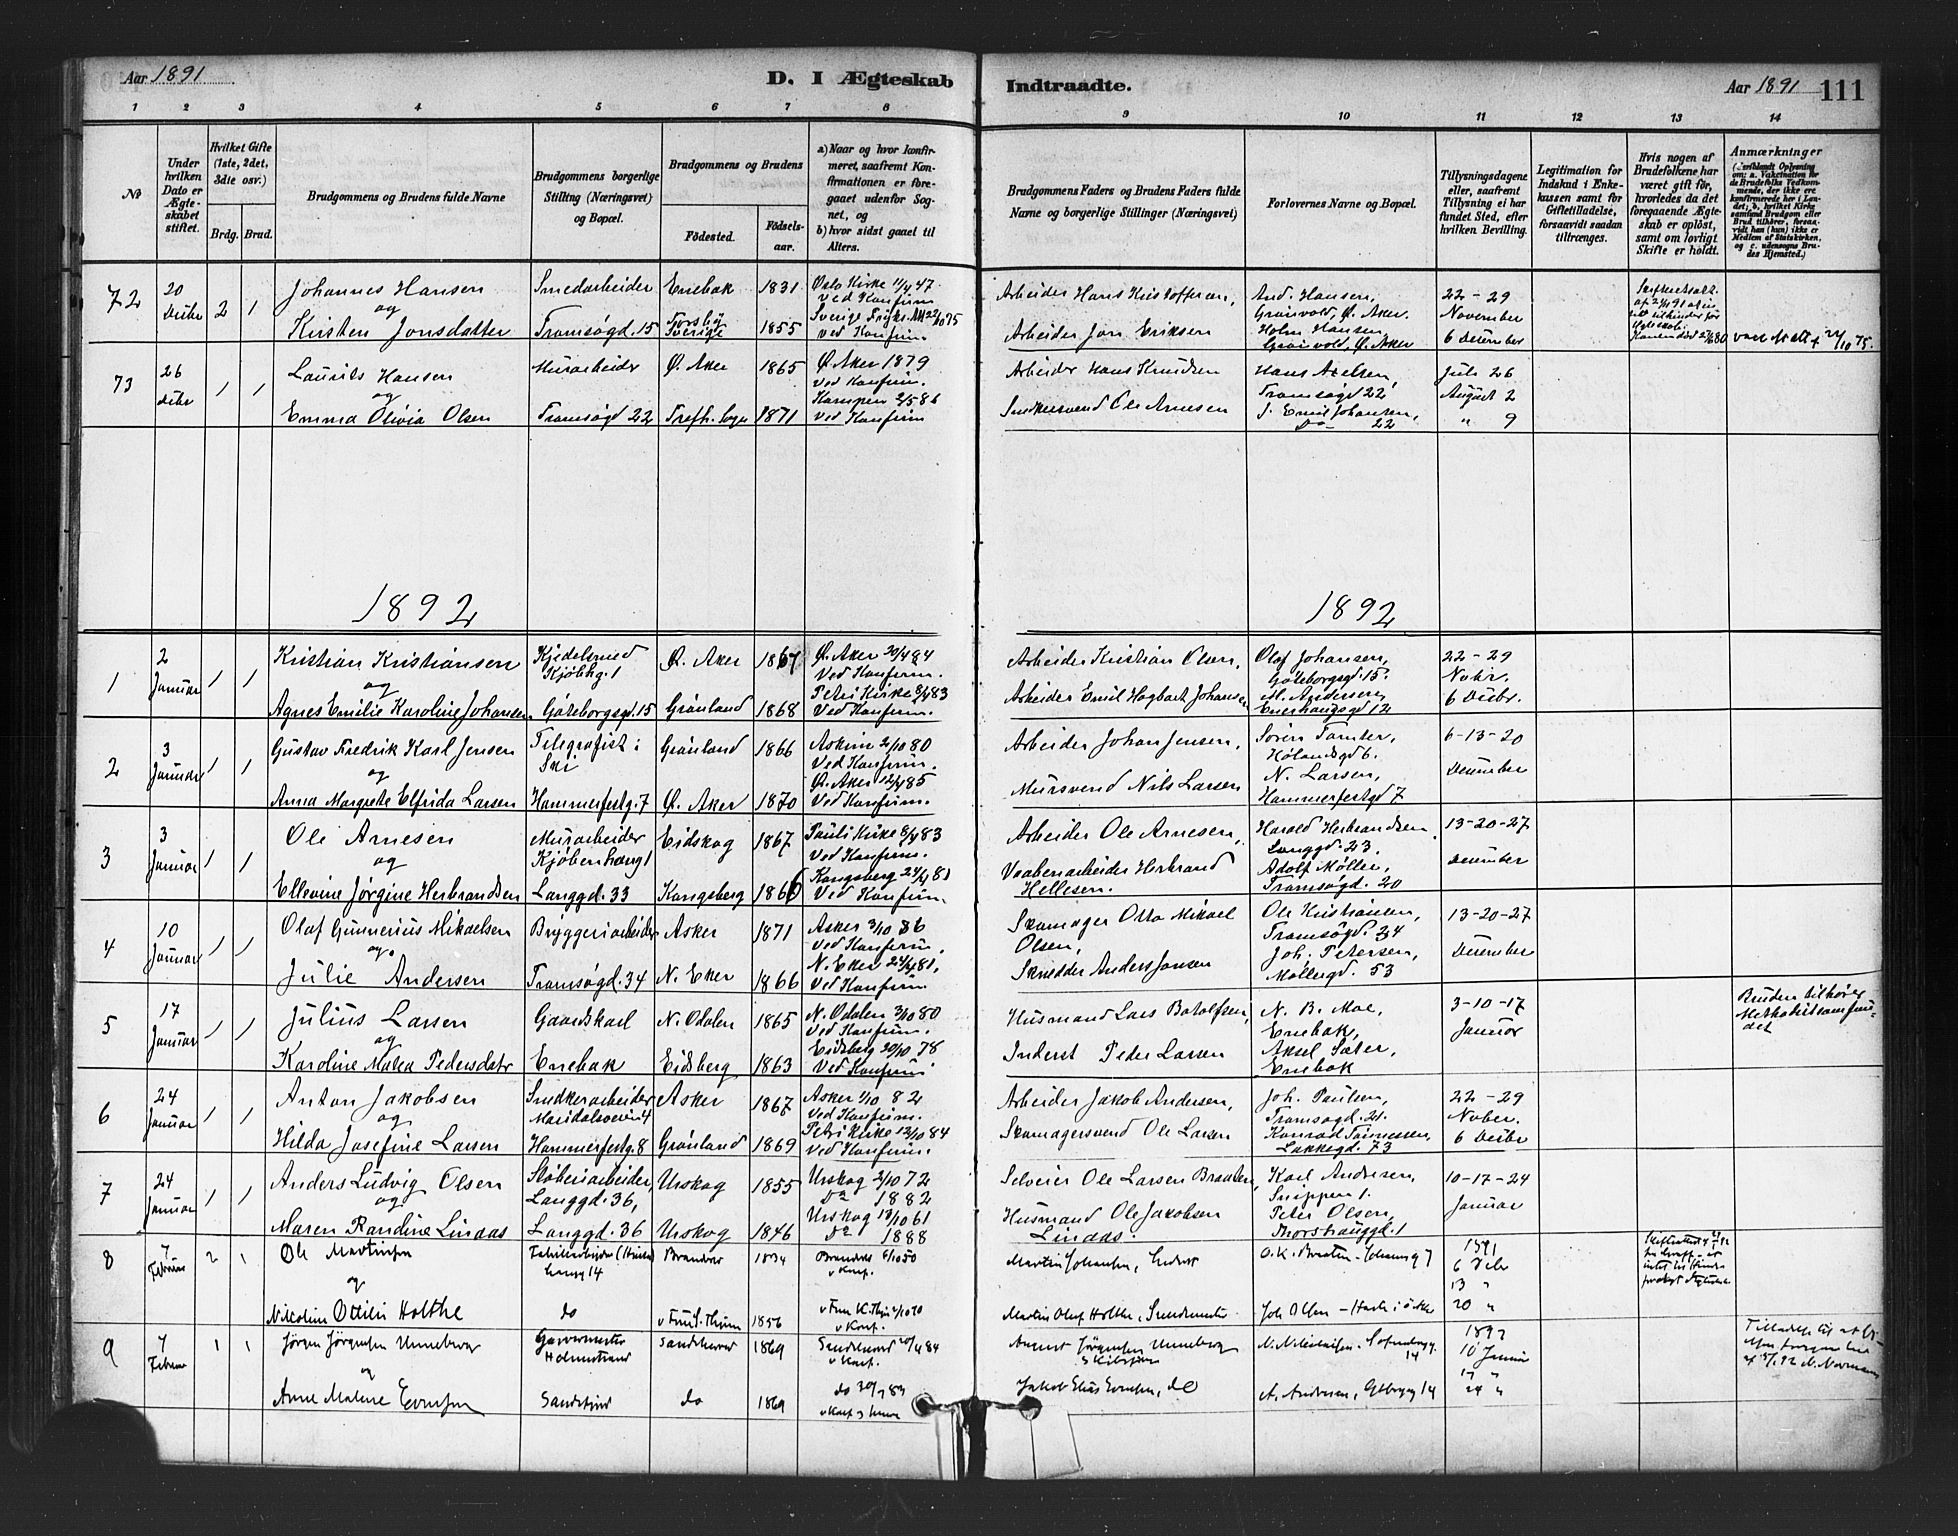 Aar 1891
D. I Ægteskab
Indtraadte.
Aar 1891
111
1 2 3 4 5 6 7 8
9 10 11 12 13 14
No
Under hvilken Dato er Ægteskabet stiftet.
Hvilket Gifte (1ste, 2det, 3die osv.)
Brdg. Brud.
Brudgommens og Brudens fulde Navne
Brudgommens borgerlige Stilling (Næringsvei) og Bopæl.
Brudgommens og Brudens
Fødested.
Fødselsaar.
a) Naar og hvor konfirmeret, saafremt Konfirmationen er foregaaet udenfor Sognet, og
b) hvor sidst gaaet til Alters.
Brudgommens Faders og Brudens Faders fulde Navne og borgerlige Stillinger (Næringsvei)
Forlovernes Navne og Bopæl.
Tillysningsdagene eller, saafremt Tillysning ei har fundet Sted, efter hvilken Bevilling.
Legitimation for Indskud i Enkekassen samt for Giftetilladelse, forsaavidt saadan tiltrænges.
Hvis nogen af Brudefolkene har været gift før, hvorledes da det foregaaende Ægteskab er opløst, samt om lovligt Skifte er holdt.
Anmærkninger
72
20 Decbr
2 1
Johannes Hansen
og
Kirsten Jonsdatter
Smedarbeider
Tromsøgd. 15
Enebak
Sverige
1831
1855
Oslo Kirke 11/4 47
Ved Konfirm
ved Konfirm.
Arbeider Hans Kristoffersen,
Arbeider Jon Eriksen
And. Hansen,
Grønvold, Ø. Aker.
Holm Hansen
Grønvold, Ø. Aker
22-29
November
6 December
73
26 Decbr
1 1
Laurits Hansen
og
Emma Olivia Olsen
Murarbeider
Tromsøgd 22
Ø. Aker
1865
1871
Ø. Aker 1879
Ved Konfirm.
Kampen 2/5 86
Ved Konfirm
Arbeider Hans Knudsen
Snedkersvend Ole Arnesen
Hans Axelsen,
Tromsøgd 22
J. Emil Johansen,
Do 22
Juli 26
August 2
" 9
1892
1892
1
2 Januar
1 1
Kristian Kristiansen
og
Agnes Emilie Karoline Johansen
Kjedelsmed
Kjøbhg. 1
Göteborgsgd. 15
Ø. Aker
Grønland
1867
1868
Ø. Aker 20/4 84
Ved Konfirm.
Petri Kirke 8/4 83
Ved Konfirm.
Arbeider Kristian Olsen,
Arbeider Emil Hagbart Johansen
Olaf Johansen,
Göteborgsgd. 15.
M. Andersen,
Enerhaugsgd 12
22-29
Novbr.
6 Decbr.
2
3 Januar
1 1
Gustav Fredrik Karl Jensen
og
Anna Margrete Elfrida Larsen
Telegrafist i
Ski
Hammerfestg. 7
Grønland
Ø. Aker
1866
1870
Askim 2/10 80
Ved Konfirm.
Ø. Aker 12/4 85
Ved Konfirm.
Arbeider Johan Jensen,
Mursvend Nils Larsen
Søren Tomter,
Hølandsgd 6.
N. Larsen,
Hammerfestgd 7
6-13-20
December
3
3 Januar
1 1
Ole Arnesen
og
Ellevine Jørgine Herbrandsen
Murarbeider
Kjøbenhavng 1
Langgd. 33
Eidskog
Kongsberg
1867
1866
Pauli Kirke 8/4 83
Ved Konfirm.
Kongsberg 24/4 81
Ved Konfirm.
Arbeider Ole Arnesen,
Vaabenarbeider Herbrand
Hellesen.
Harald Herbrandsen,
Langgd. 23.
Adolf Møller,
Tromsøgd. 20
13-20-27
December
4
10 Januar
1 1
Olaf Gunnerius Mikaelsen
og
Julie Andersen
Bryggeriarbeider
Tromsøgd. 34
Asker
N. Eker
1871
1866
Asker 3/10 86
Ved Konfirm,
N. Eker 24/4 81,
Ved Konfirm.
Skomager Otto Mikael
Olsen,
Skrædder Anders Jonsen
Ole Kristiansen,
Tromsøgd. 34
Joh. Petersen,
Møllergd. 53
13-20-27
December
5
17 Januar
1 1
Julius Larsen
og
Karoline Malea Pedersdatr
Gaardskarl
Enebak
N. Odalen
Eidsberg
1865
1863
N. Odalen 3/10 80
Ved Konfirm.
Eidsberg 20/10 78
Ved Konfirm
Husmand Lars Botolfsen,
Inderst Peder Larsen
N. B. Moe,
Enebak,
Aksel Sæter,
Enebak
3-10-17
Januar
Bruden tilhører
Methodistsamfun-
det
6
24 Januar
1 1
Anton Jakobsen
og
Hilda Josefine Larsen
Snedkerarbeider
Maridalsveien 4
Hammerfestg. 8
Asker
Grønland
1867
1869
Asker 1/10 82
Ved Konfirm.
Petri Kirke 12/10 84
Ved Konfirm.
Arbeider Jakob Andersen,
Skomagersvend Ole Larsen
Joh. Paulsen,
Tromsøgd. 21.
Konrad Tønnessen,
Lakkegd. 73
22-29
Novber.
6 Decbr
7
24 Januar
1 1
Anders Ludvig Olsen
og
Maren Randine Lindaas
Støberiarbeider,
Langgd. 36,
Langgd. 36
Urskog
Urskog
1855
1846
Urskog 2/10 72
Do 1882
Urskog 13/10 61
Do 1888
Selveier Ole Larsen Braaten,
Husmand Ole Jakobsen
Lindaas.
Karl Andersen,
Snippen 1.
Peter Olsen,
Thorshauggd. 1
10-17-24
Januar
8
7 Februar
2 1
Ole Martinsen
og
Nicoline Ottilie Holthe
do
1834
1856
v Konf.
v Konf.
Martin Johansen, Inderst
Martin Olaf Holthe,
O. K. Braaten - Johannsg 7
Joh Olsen
1891
6 Decbr
13 "
20 "
9
7 Februar
1 1
Jørgen Jørgensen Unneberg
og
Anne Malene Evensen
Garvermester
Holmestrand
Sandefjord
Sandeherred
do
1869
1869
Sandeherred 20/4 84
v Konf.
August Jørgensen Unneberg
Jakob Elias Evensen, do
A. Andersen, Gtbrgg 14
1892
10 Januar
17 "
24 "